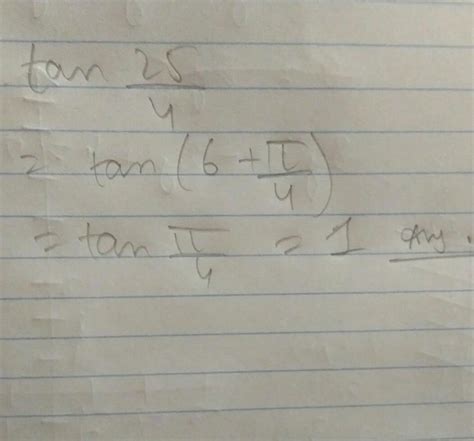 tan 25/4
= tan (6 + π/4)
= tan π/4 = 1 ans.